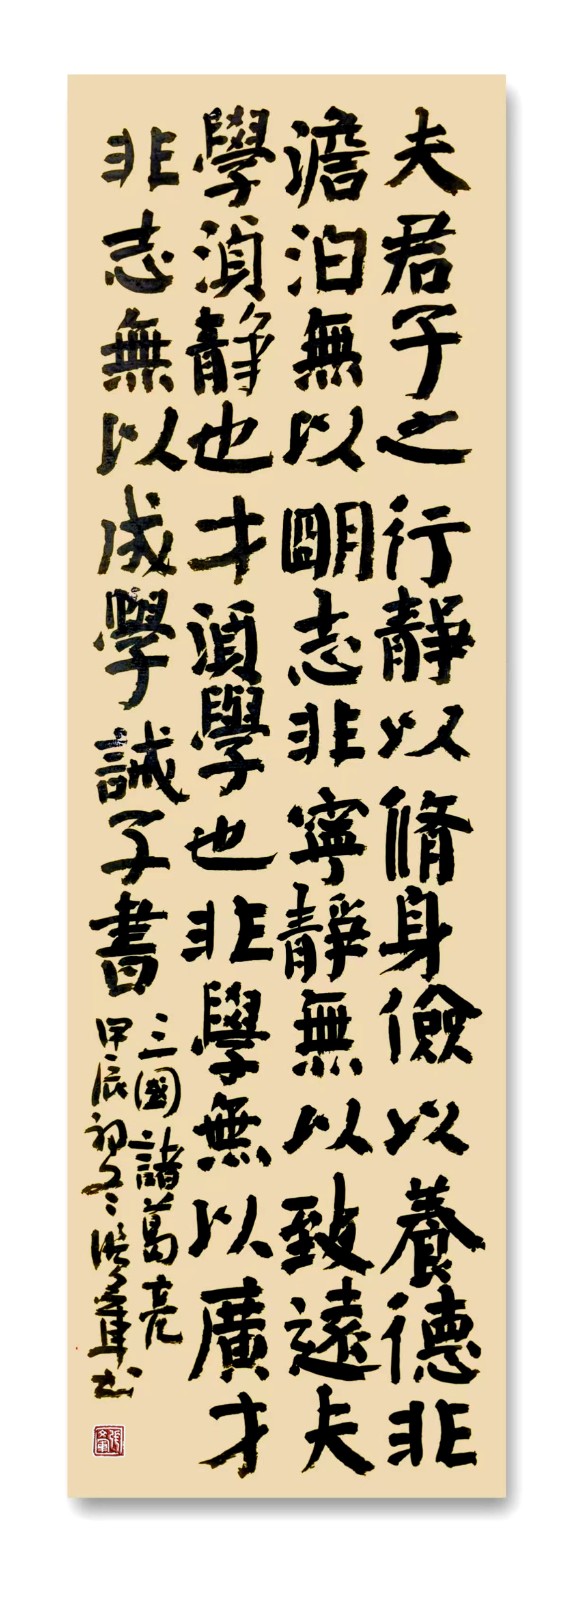 夫君子之行靜以脩身儉以養德非
澹泊無以朙志非寧靜無以致遠夫
學湏静也才湏學也非學無以廣才
非志無以成學誡子書
三國諸葛亮
甲辰初冬